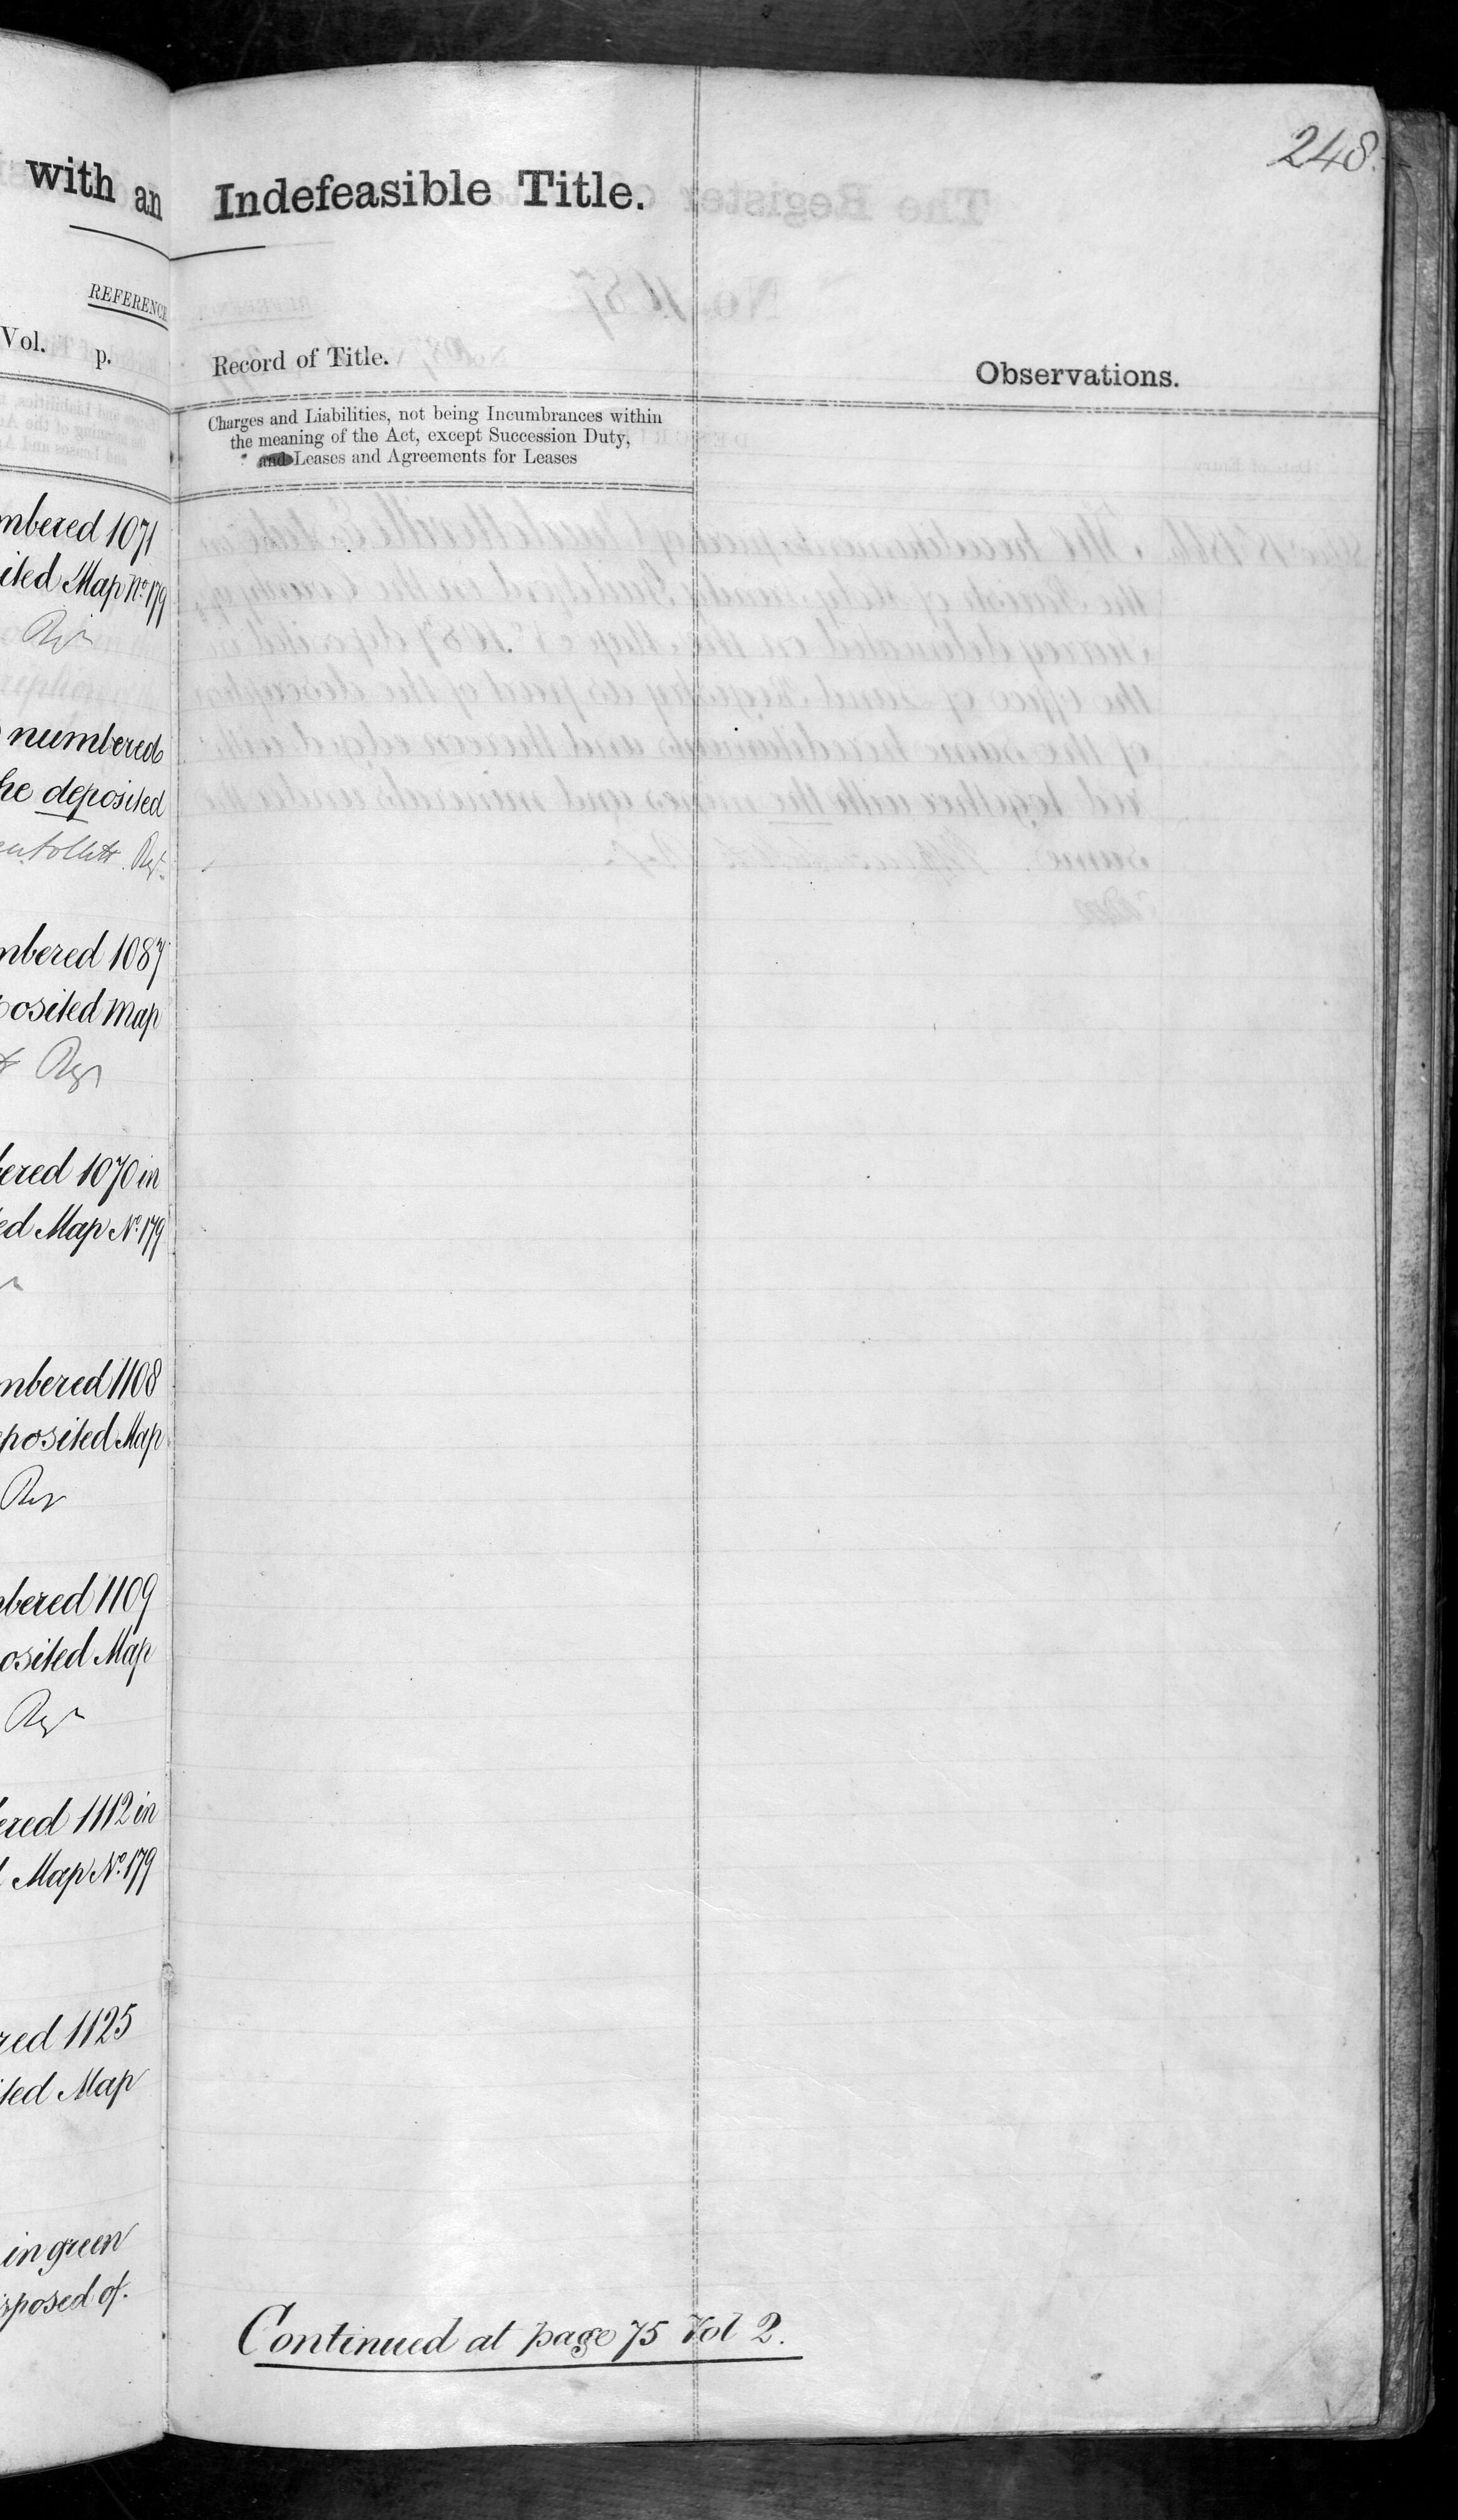 with an
REFERENCE
Vol. p.
mbered 1071
ited Map No. 179
Regr
numbered
he deposited
Regr
mbered 1087
posited Map
Regr
bered 1070 in
ed Map No. 179
mbered 1108
eposited Map
Regr
mbered 1109
osited Map
Regr
ered 1112 in
Map No. 179
red 1125
ited Map
in green
isposed of.
248.
Indefeasible Title.
Record of Title.
Observations.
Charges and Liabilities, not being Incumbrances within
the meaning of the Act, except Succession Duty,
and Leases and Agreements for Leases
Continued at page 75 Vol 2.